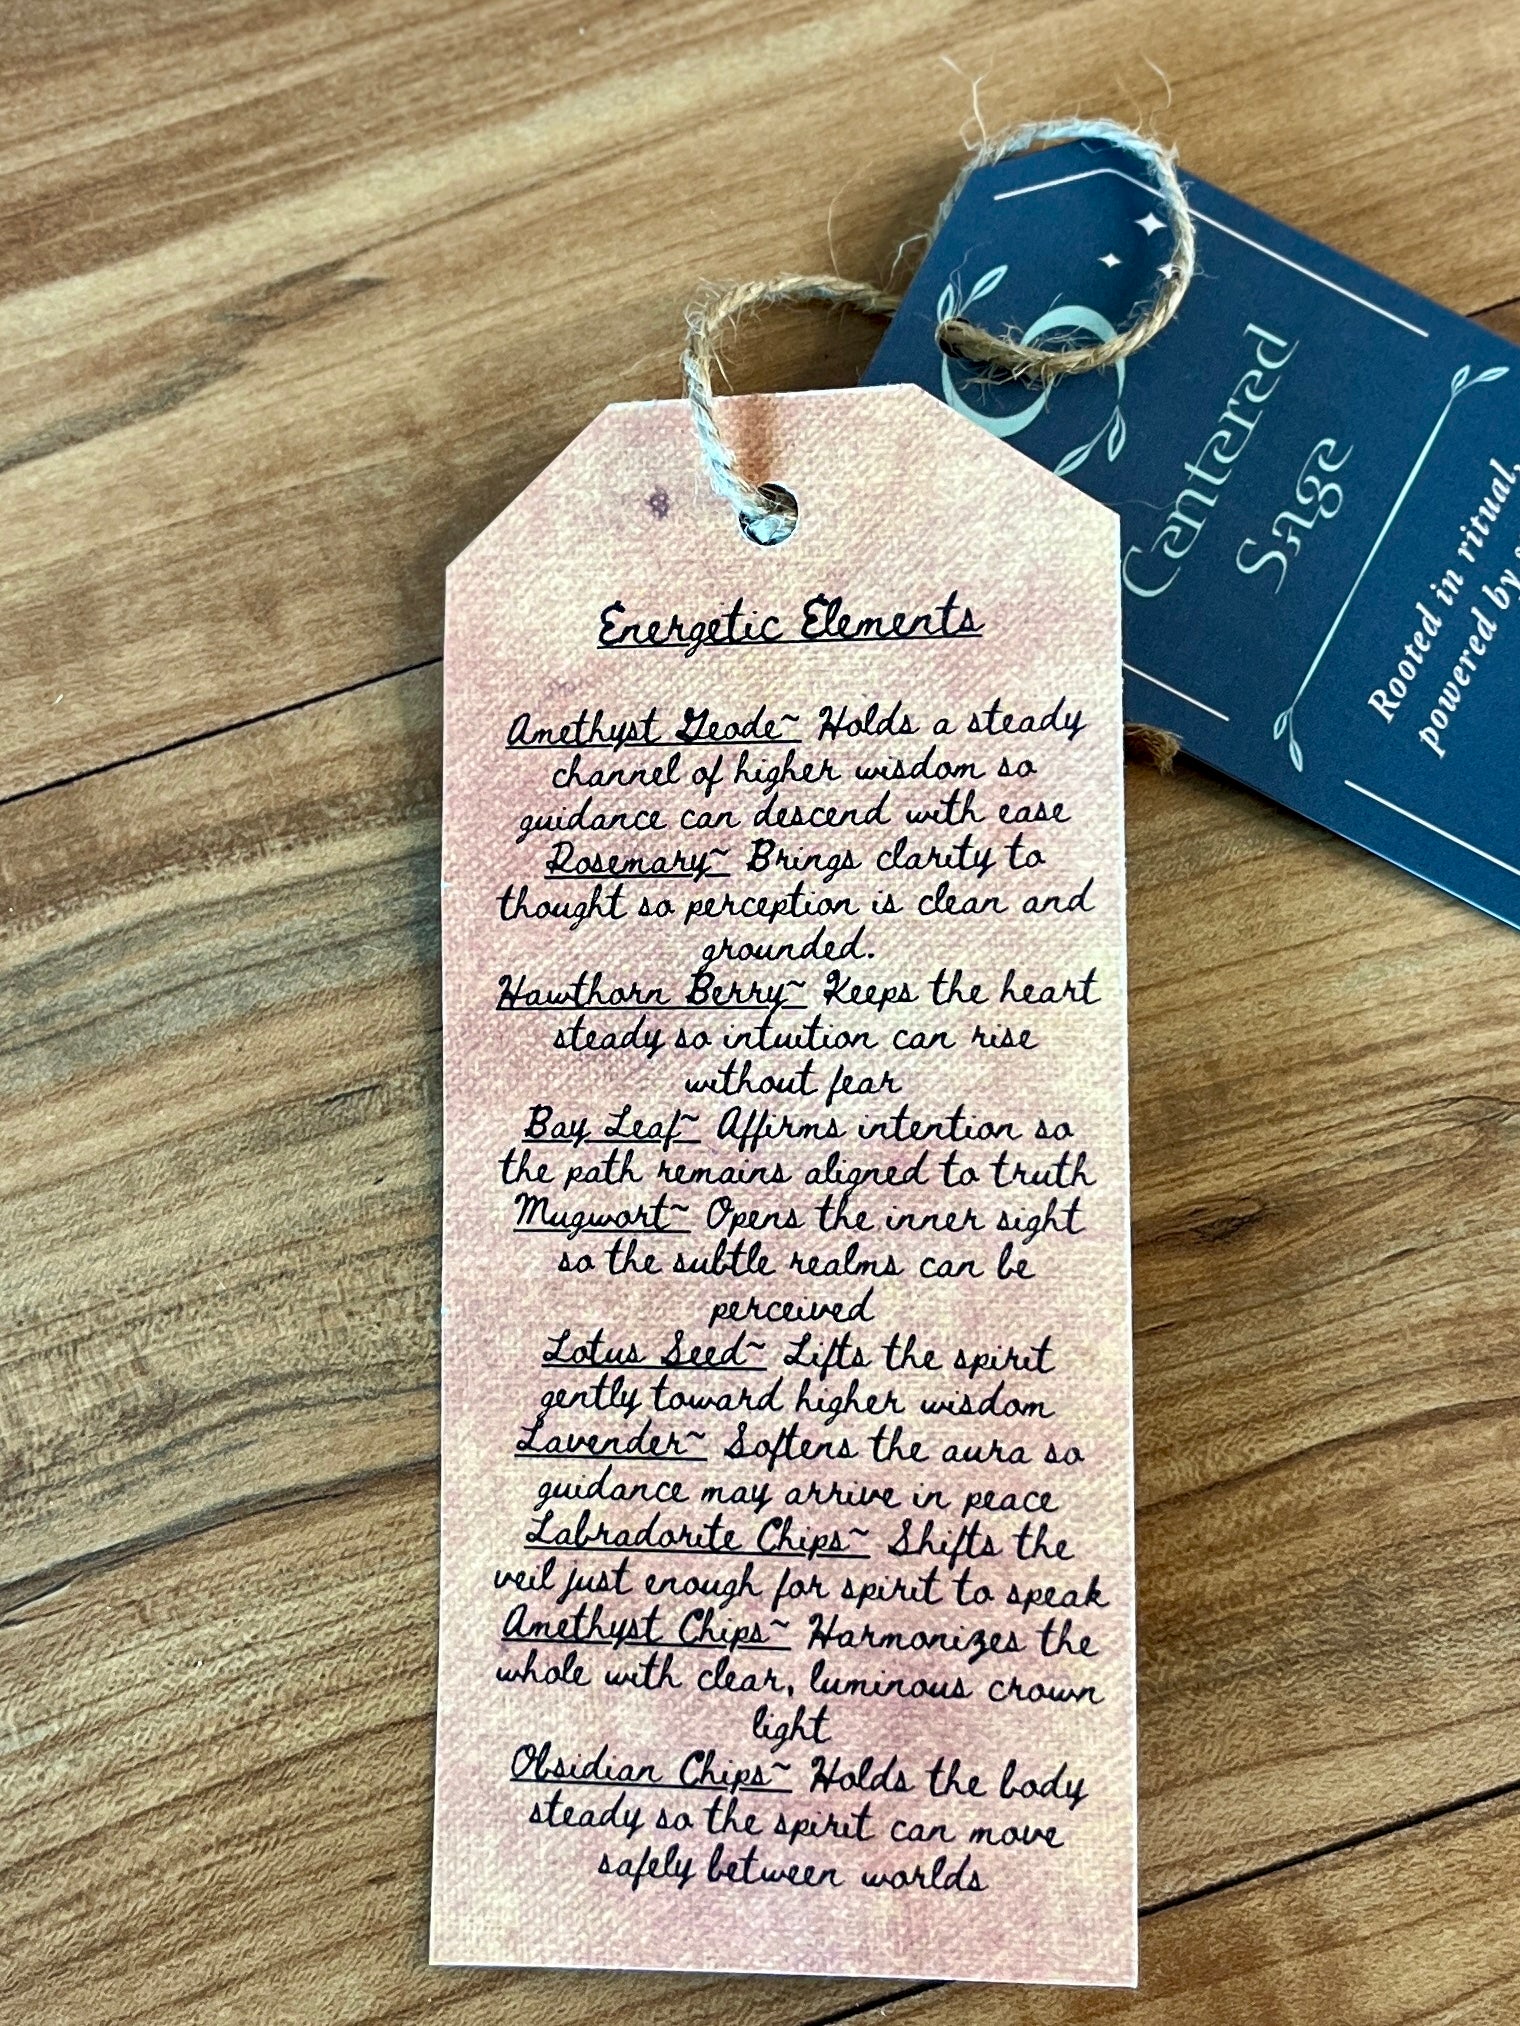 Energetic Elements
Amethyst Geode~ Holds a steady
channel of higher wisdom so
guidance can descend with ease
Rosemary~ Brings clarity to
thought so perception is clean and
grounded.
Hawthorn Berry~ Keeps the heart
steady so intuition can rise
without fear
Bay Leaf~ Affirms intention so
the path remains aligned to truth
Mugwort~ Opens the inner sight
so the subtle realms can be
perceived
Lotus Seed~ Lifts the spirit
gently toward higher wisdom
Lavender~ Softens the aura so
guidance may arrive in peace
Labradorite Chips~ Shifts the
veil just enough for spirit to speak
Amethyst Chips~ Harmonizes the
whole with clear, luminous crown
light
Obsidian Chips~ Holds the body
steady so the spirit can move
safely between worlds
Centered
Sage
Rooted in ritual,
powered by